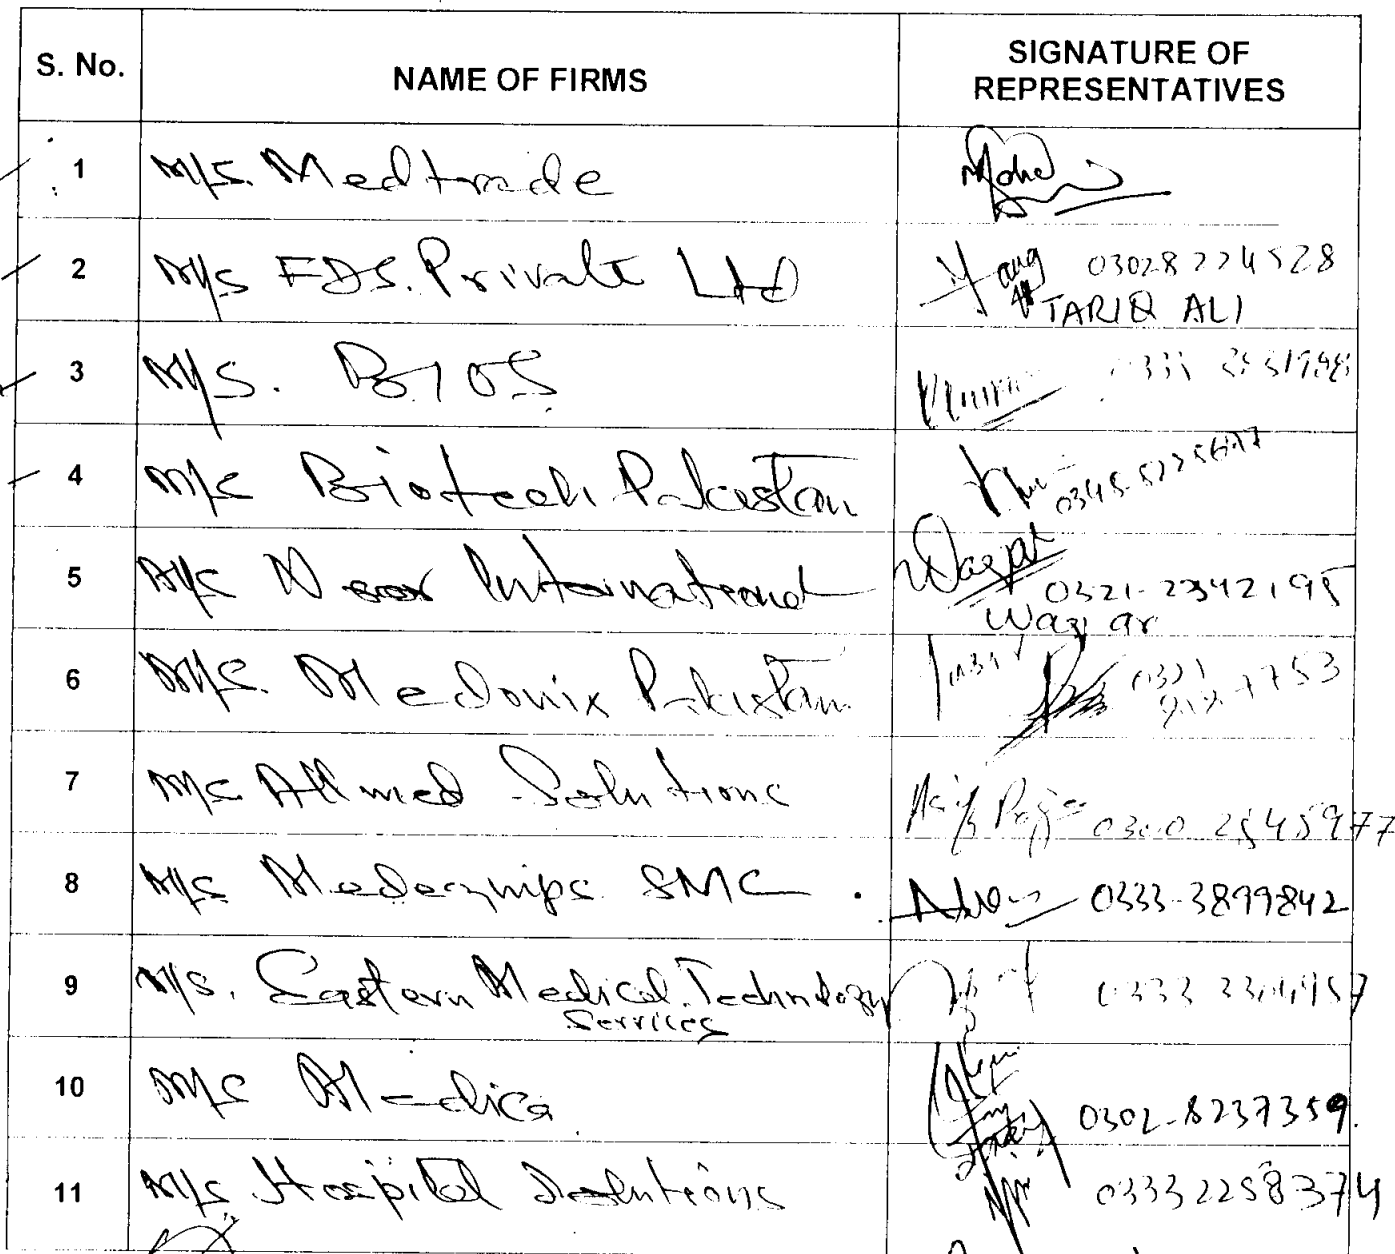 S. No. NAME OF FIRMS SIGNATURE OF
REPRESENTATIVES
1 M/S. Medtrade
2 M/S FDS. Private Ltd 03028224528
TARIQ ALI
3 M/S. BIOS
4 M/S Biotech Pakistan
5 M/S Noor International 0321-2342195
Waqar
6 M/S. Medonix Pakistan
7 M/S Allmed Solutions 0300 2545977
8 M/S Medequips SMC 0333-3899842
9 M/S. Eastern Medical Technology
Services 0333
10 M/S Medica 0302-8237359
11 M/S Hospital Solutions 03332258374